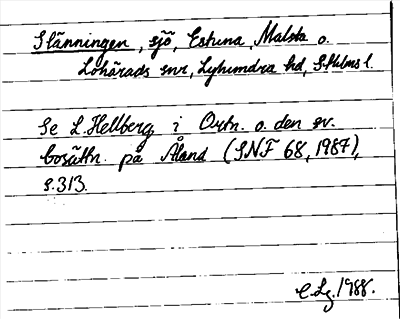 Slänningen, sjö, Estuna, Malsta o.
Lohärads snr, Lyhundra hd, Sthlms l.
Se L. Hellberg i Ortn. o. den sv.
bosättn. på Åland (SNF 68, 1987),
s. 313.
E.Lg. 1988.